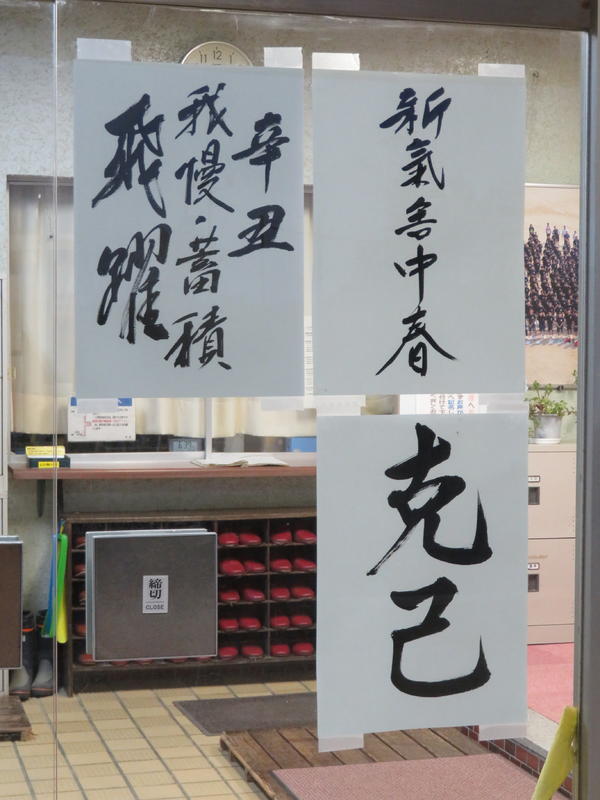 新氣含中春
辛丑
我慢・蓄積
飛躍
克己
締切
CLOSE
12